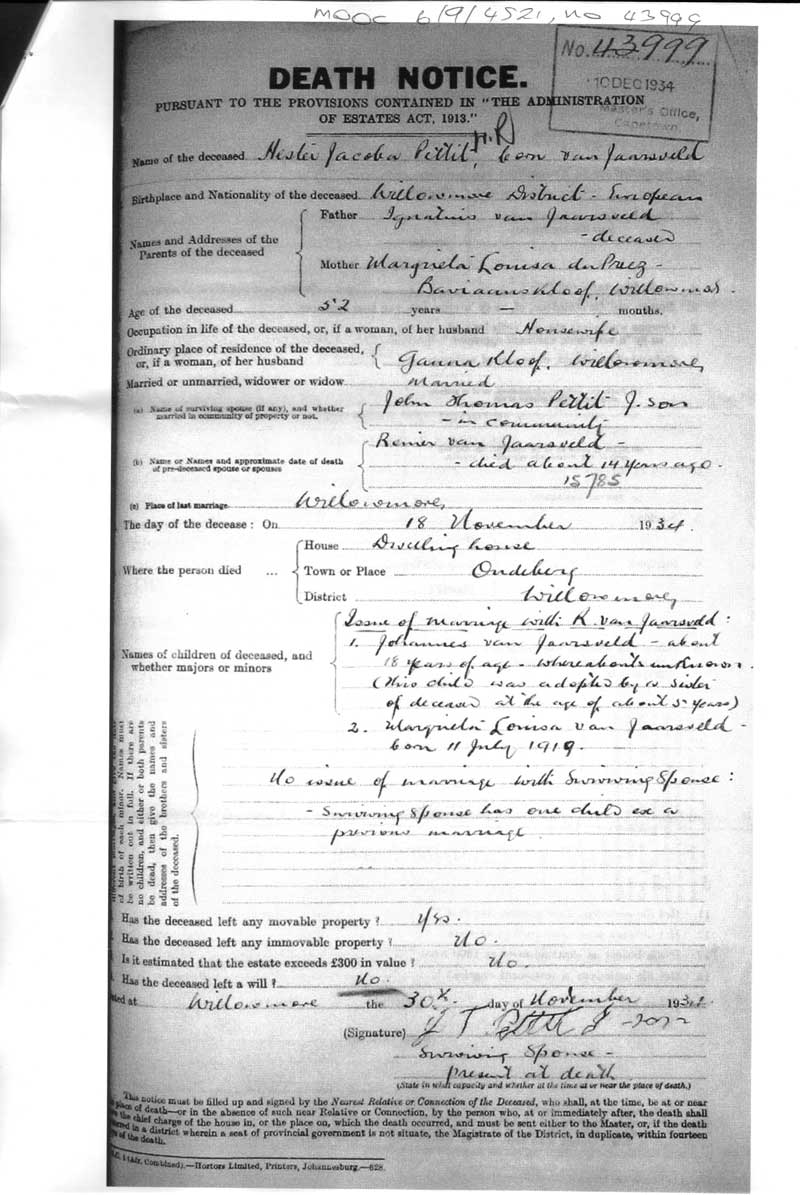 MOOC 6/9/4521, no 43999
No. 43999
10 DEC 1934
Master's Office,
Capetown
DEATH NOTICE.
PURSUANT TO THE PROVISIONS CONTAINED IN "THE ADMINISTRATION
OF ESTATES ACT, 1913."
Name of the deceased Hester Jacoba Pettit, born van Jaarsveld
Birthplace and Nationality of the deceased Willowmore District - European
Names and Addresses of the Parents of the deceased
Father Ignatius van Jaarsveld
- deceased
Mother Margrieta Louisa du Preez -
Baviaanskloof, Willowmore.
Age of the deceased 52 years — months.
Occupation in life of the deceased, or, if a woman, of her husband Housewife
Ordinary place of residence of the deceased,
or, if a woman, of her husband Ganna Kloof, Willowmore,
Married or unmarried, widower or widow Married
(a) Name of surviving spouse (if any), and whether
married in community of property or not.
John Thomas Pettit J. son
- in community
(b) Name or Names and approximate date of death
of pre-deceased spouse or spouses
Renier van Jaarsveld -
- died about 14 years ago.
15785
(c) Place of last marriage Willowmore,
The day of the decease : On 18 November 1934
Where the person died ...
House Dwelling house
Town or Place Ondeberg
District Willowmore,
Names of children of deceased, and
whether majors or minors
Issue of marriage with R. van Jaarsveld :
1. Johannes van Jaarsveld - about
18 years of age - whereabouts unknown.
(This child was adopted by a sister
of deceased at the age of about 5 years)
2. Margrieta Louisa van Jaarsveld -
born 11 July 1919.
of birth of each minor. Names must
be written out in full. If there are
no children, and either or both parents
be dead, then give the names and
addresses of the brothers and sisters
of the deceased.
No issue of marriage with Surviving Spouse :
- Surviving Spouse has one child ex a
previous marriage
Has the deceased left any movable property ? Yes.
Has the deceased left any immovable property ? No.
Is it estimated that the estate exceeds £300 in value ? No.
Has the deceased left a will ? No.
at Willowmore the 30th. day of November 1934.
(Signature) J T Pettit J - son
Surviving Spouse -
present at death
(State in what capacity and whether at the time at or near the place of death.)
This notice must be filled up and signed by the Nearest Relative or Connection of the Deceased, who shall, at the time, be at or near
place of death—or in the absence of such near Relative or Connection, by the person who, at or immediately after, the death shall
the chief charge of the house in, or the place on, which the death occurred, and must be sent either to the Master, or, if the death
in a district wherein a seat of provincial government is not situate, the Magistrate of the District, in duplicate, within fourteen
of the death.
Combined).—Hortors Limited, Printers, Johannesburg.—628.